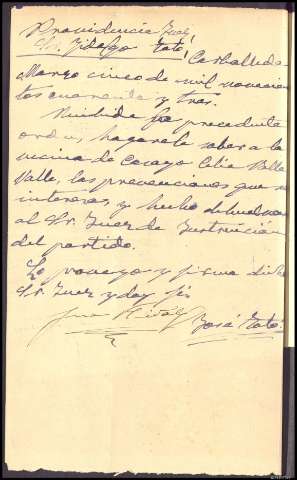 Providencia Juez
Sr. Hidalgo Tató. Carballedo
Marzo cinco de mil novecien
tos cuarenta y tres.
Recibida la precedente
orden, hagansele saber a la
vecina de Celia Valle
Valle, las prevenciones que se
interesan, y hecho devuelvase
al Sr. Juez de Instrucción
del partido.
Lo proveyo y firma dicho
Sr. Juez y doy fé
José Tató